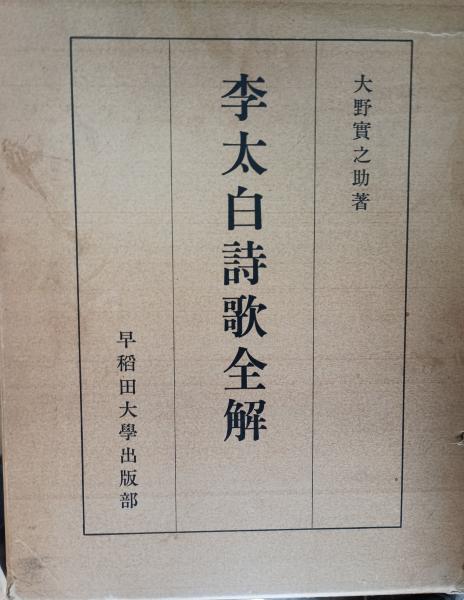 大野實之助著
李太白詩歌全解
早稻田大學出版部